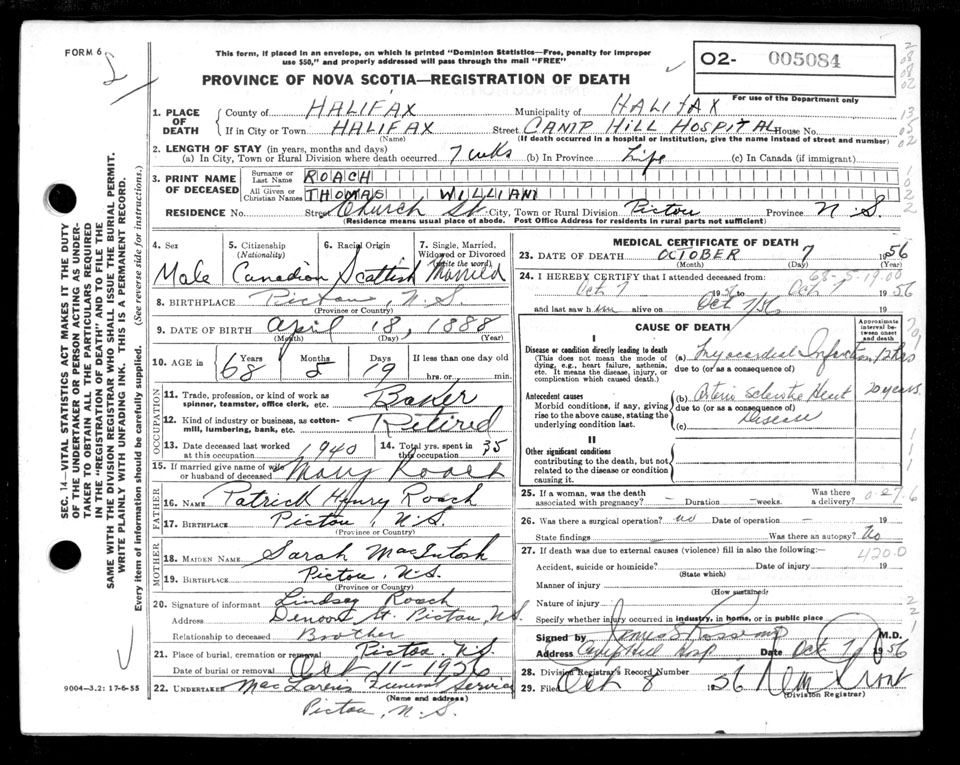 FORM 6
This form, if placed in an envelope, on which is printed "Dominion Statistics—Free, penalty for improper
use $50," and properly addressed will pass through the mail "FREE"
PROVINCE OF NOVA SCOTIA—REGISTRATION OF DEATH
02- 005084
For use of the Department only
SEC. 14—VITAL STATISTICS ACT MAKES IT THE DUTY
OF THE UNDERTAKER OR PERSON ACTING AS UNDER-
TAKER TO OBTAIN ALL THE PARTICULARS REQUIRED
IN THE "REGISTRATION OF DEATH" AND TO FILE THE
SAME WITH THE DIVISION REGISTRAR WHO SHALL ISSUE THE BURIAL PERMIT.
WRITE PLAINLY WITH UNFADING INK. THIS IS A PERMANENT RECORD.
Every item of information should be carefully supplied. (See reverse side for instructions.)
1. PLACE OF DEATH
County of HALIFAX Municipality of HALIFAX
If in City or Town HALIFAX Street CAMP HILL HOSPITAL House No.
(Name) (If death occurred in a hospital or institution, give the name instead of street and number)
2. LENGTH OF STAY (in years, months and days)
(a) In City, Town or Rural Division where death occurred 7 wks (b) In Province Life (c) In Canada (if immigrant)
3. PRINT NAME OF DECEASED
Surname or Last Name ROACH
All Given or Christian Names THOMAS WILLIAM
RESIDENCE No. Street Church St. City, Town or Rural Division Pictou Province N.S
(Residence means usual place of abode. Post Office Address for residents in rural parts not sufficient)
4. Sex
Male
5. Citizenship (Nationality)
Canadian
6. Racial Origin
Scottish
7. Single, Married, Widowed or Divorced (Write the word)
Married
8. BIRTHPLACE Pictou, N.S.
(Province or Country)
9. DATE OF BIRTH April 18, 1888
(Month) (Day) (Year)
10. AGE in 68 Years Months Days 19 If less than one day old
hrs. or min.
OCCUPATION
11. Trade, profession, or kind of work as spinner, teamster, office clerk, etc. Baker
12. Kind of industry or business, as cotten-mill, lumbering, bank, etc. Retired
13. Date deceased last worked at this occupation 1940 14. Total yrs. spent in this occupation 35
15. If married give name of wife or husband of deceased Mary Roach
FATHER
16. NAME Patrick Henry Roach
17. BIRTHPLACE Pictou, N.S.
(Province or Country)
MOTHER
18. MAIDEN NAME Sarah MacIntosh
19. BIRTHPLACE Pictou, N.S.
(Province or Country)
20. Signature of informant Lindsay Roach
Address Denoon St. Pictou, N.S.
Relationship to deceased Brother
21. Place of burial, cremation or removal Pictou N.S.
Date of burial or removal Oct 11-1956
22. UNDERTAKER MacLarens Funeral Service
(Name and address)
Pictou, N.S.
9004-3.2: 17-6-55
MEDICAL CERTIFICATE OF DEATH
23. DATE OF DEATH OCTOBER 7 1956
(Month) (Day)
68-5-19.00
24. I HEREBY CERTIFY that I attended deceased from:
Oct 7 1956 to Oct 7 1956
and last saw him alive on Oct 7/56 19
CAUSE OF DEATH
Approximate interval between onset and death
I
Disease or condition directly leading to death
(This does not mean the mode of dying, e.g., heart failure, asthenia, etc. It means the disease, injury, or complication which caused death.)
(a) Myocardial Infarction 12 hrs
due to (or as a consequence of)
Antecedent causes
Morbid conditions, if any, giving rise to the above cause, stating the underlying condition last.
(b) Arterio Sclerotic Heart 20 years
due to (or as a consequence of)
Disease
(c)
II
Other significant conditions
contributing to the death, but not related to the disease or condition causing it.
25. If a woman, was the death associated with pregnancy? – Duration – weeks. Was there a delivery?
26. Was there a surgical operation? no Date of operation – 19
State findings Was there an autopsy? No
27. If death was due to external causes (violence) fill in also the following:—
420.0
Accident, suicide or homicide? Date of injury 19
(State which)
Manner of injury
(How sustained)
Nature of injury
Specify whether injury occurred in industry, in home, or in public place
Signed by James M.D.
Address Camp Hill Hosp Date Oct 7 1956
28. Division Registrar's Record Number
29. Filed Oct 8 1956
(Division Registrar)